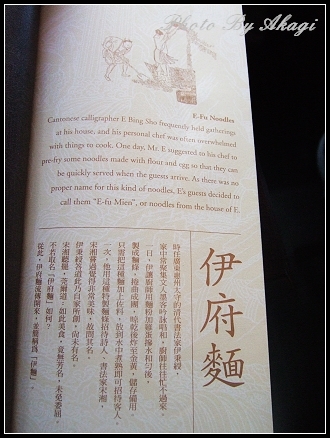 Photo By Akagi
E-Fu Noodles
Cantonese calligrapher E Bing Sho frequently held gatherings
at his house, and his personal chef was often overwhelmed
with things to cook. One day, Mr. E suggested to his chef to
pre-fry some noodles made with flour and egg so that they can
be quickly served when the guests arrive. As there was no
proper name for this kind of noodles, E's guests decided to
call them "E-fu Mien", or noodles from the house of E.
伊府麵
時任廣東惠州太守的清代書法家伊秉綬,
家中常聚集文人墨客吟詠唱和,廚師往往忙不過來,
一日,伊讓廚師用麵粉加雞蛋摻水和勻後,
製成麵條,捲曲成團,晾乾後炸至金黃,儲存備用,
只需把這種麵加上佐料,放到水中煮熟即可招待客人。
一次,他用這種特製麵條招待詩人、書法家宋湘,
宋湘嘗過覺得非常美味,故問其名。
伊秉綬答道此乃自家所創,尚未有名。
宋湘聽罷,莞爾道:如此美食,竟無芳名,未免委屈,
不若取名「伊府麵」如何?
從此,伊府麵流傳開來,並簡稱為「伊麵」。